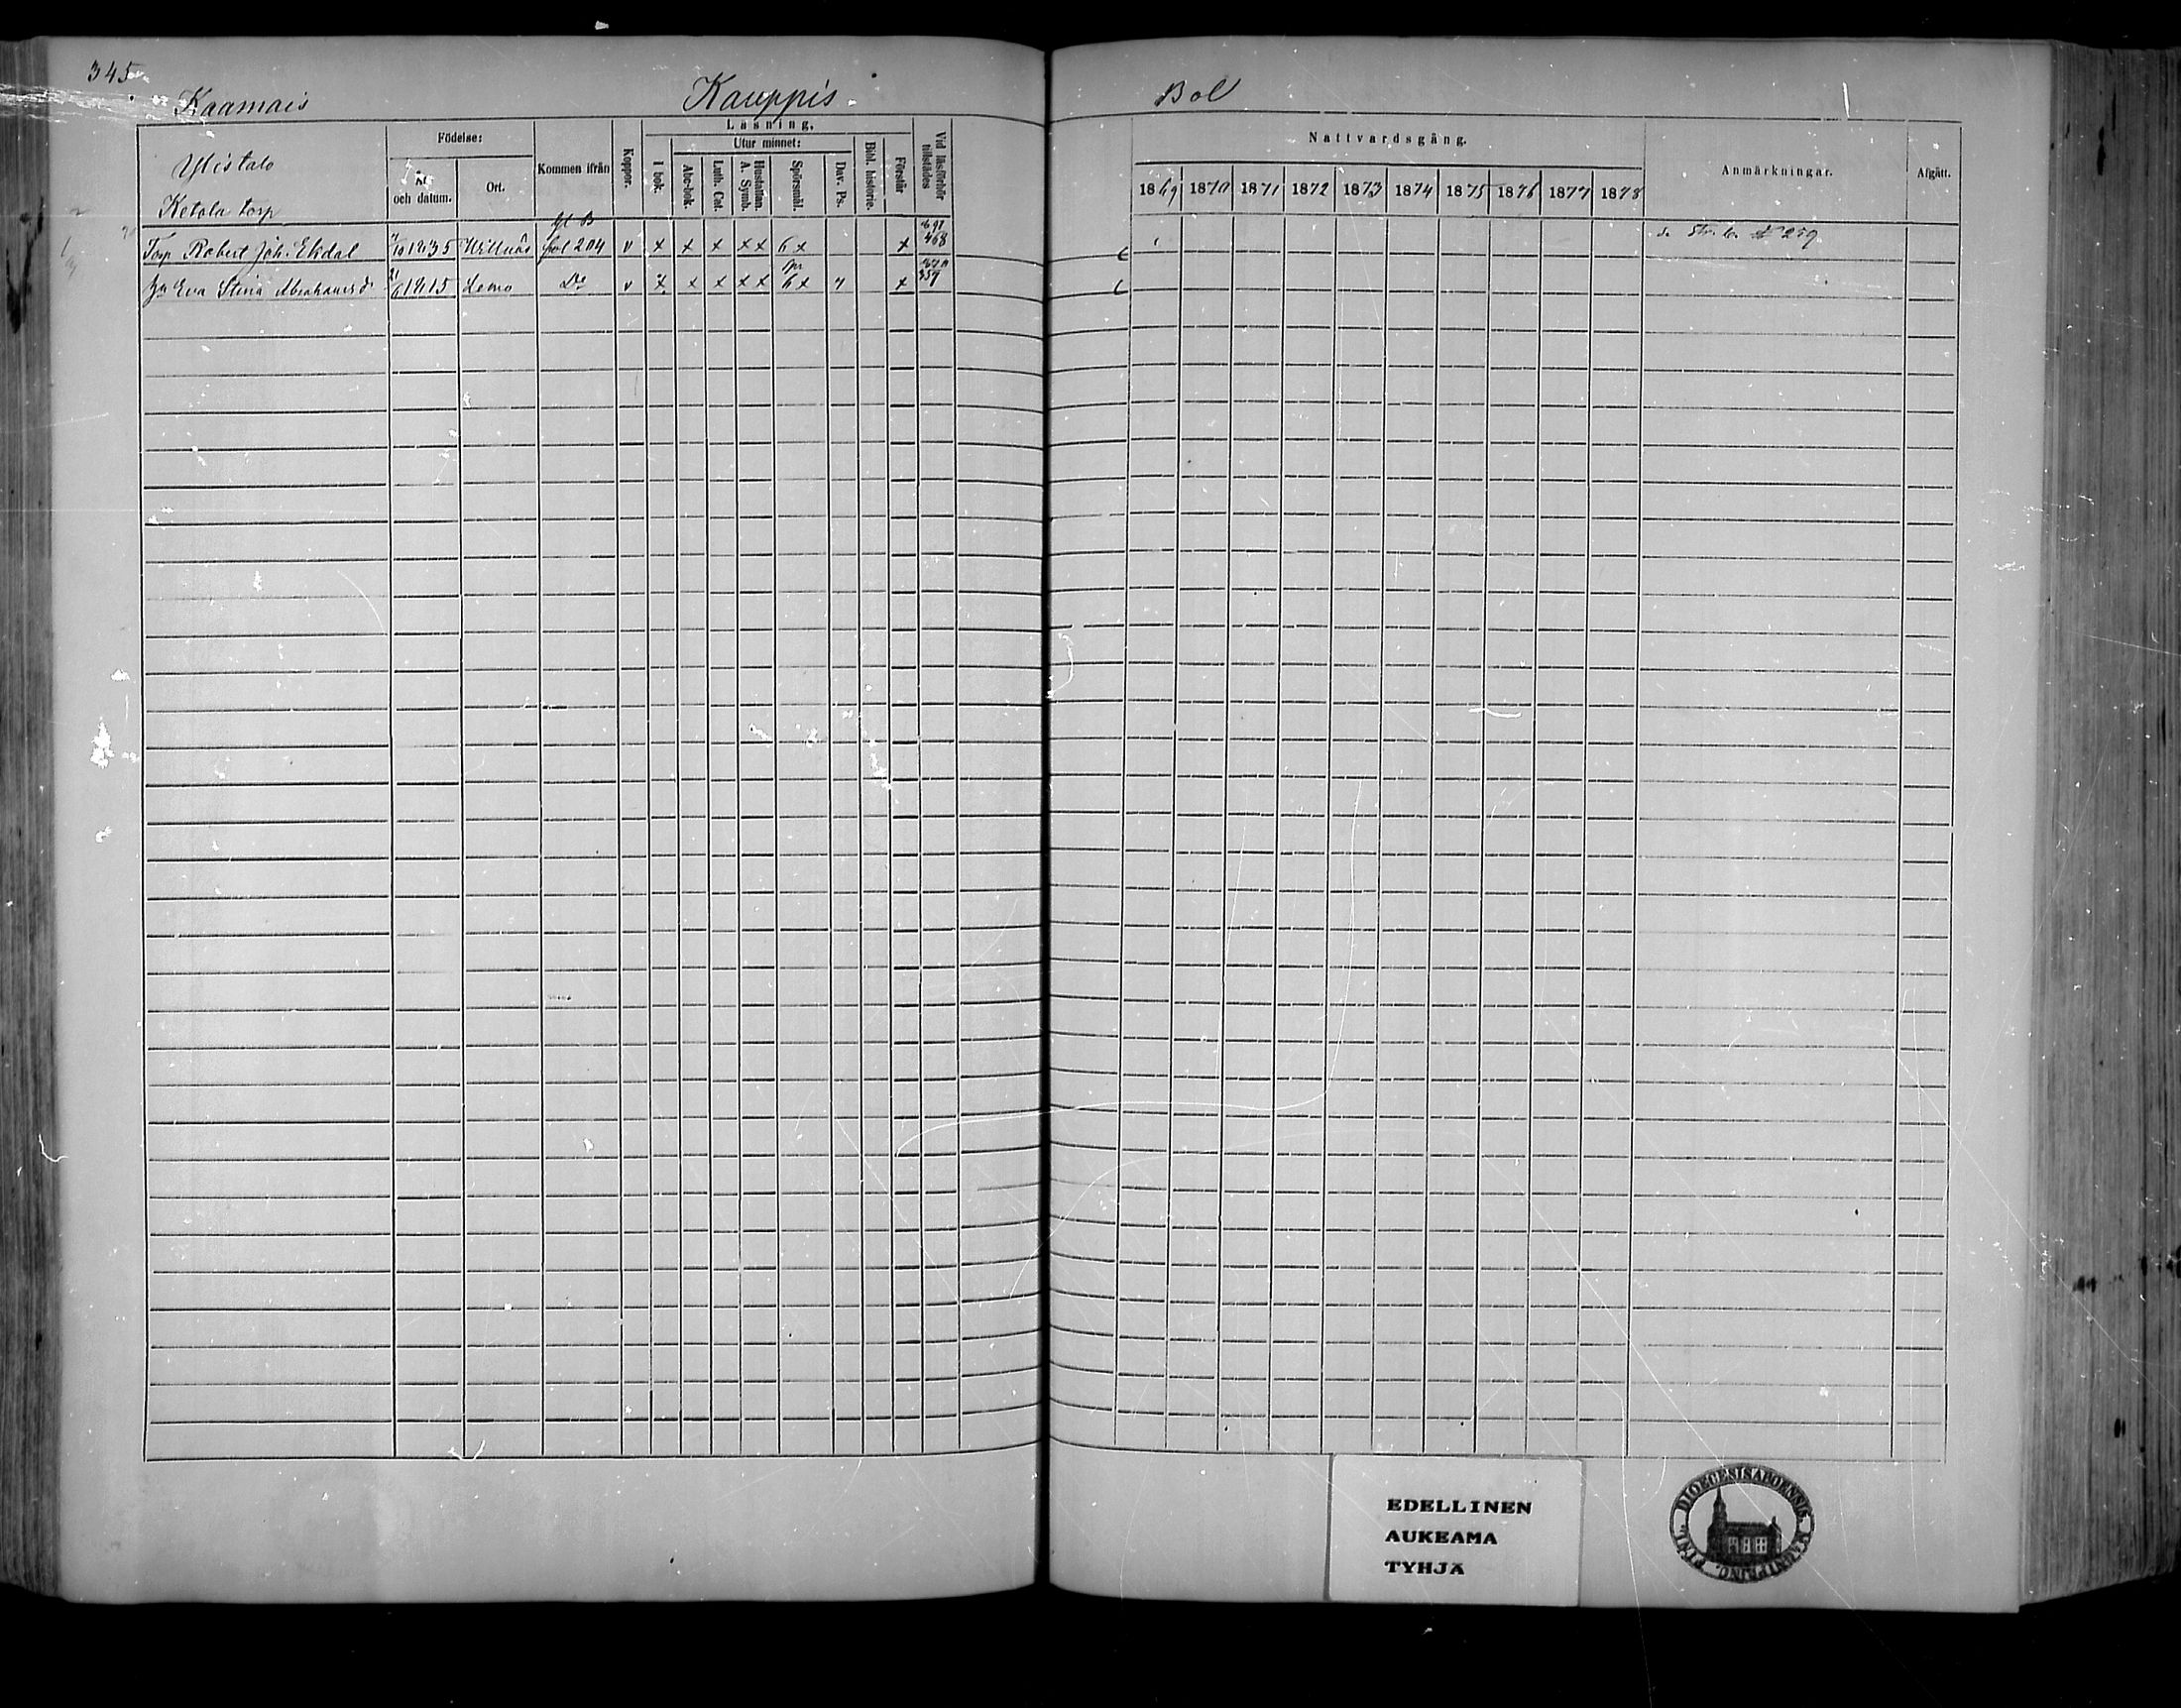 345
Kaamais Kauppis Bol
Födelse: Kommen ifrån Koppor. Läsning. Vid läsförhör tillstädes Nattvardsgång. Anmärkningar. Afgått.
Utur minnet:
År och datum. Ort. I bok. Abc-bok. Luth. Cat. Hustaflan. A. Symb. Spörsmål. Dav. Ps. Bibl. historie. Förstår
1869 1870 1871 1872 1873 1874 1875 1876 1877 1878
Ylistalo
Ketola torp
Gl B
Torp Robert Joh. Ekdal 1835 Willnäs fol 204 v x x x x x 6 x x 468 No 259
Eva Stina Abrahamsd. 1815 Lemo Do v x x x x x 6 x x 359
EDELLINEN
AUKEAMA
TYHJÄ
DIOECESIS ABOENSIS